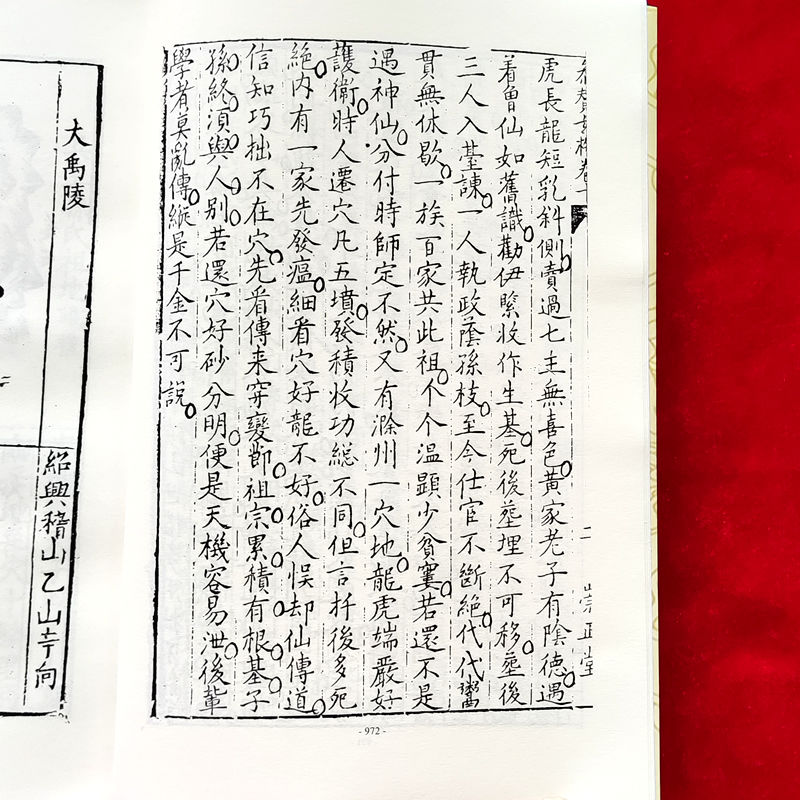 二 崇正堂
虎長龍短乳斜側賣過七主無喜色黃家老子有陰德遇
着曾仙如舊識勸伊緊收作生基死後塟埋不可移塟後
三人入臺諫一人執政蔭孫枝至今仕官不斷絕代代
貫無休歇一族百家共此祖个个溫顯少貧窶若還不是
遇神仙分付時師定不然又有滁州一穴地龍虎端嚴好
護衛時人遷穴凡五墳發積收功總不同但言扦後多死
絕内有一家先發瘟細看穴好龍不好俗人悮却仙傳道
信知巧拙不在穴先看傳来穿變節祖宗累積有根基子
孫終湏與人別若還穴好砂分明便是天機容易泄後輩
學者莫亂傳縱是千金不可說
- 972 -
大禹陵
紹興稽山乙山辛向